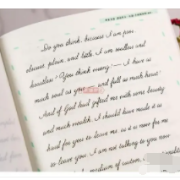 Do you think, because I am poor,
obscure, plain, and little, I am soulless and
heartless? You think wrong — I have as
much soul as you — and full as much heart!
And if God had gifted me with some beauty
and much wealth, I should have made it as
hard for you to leave me, as it is now for me
to leave you. I am not talking to you now
medium of custom,